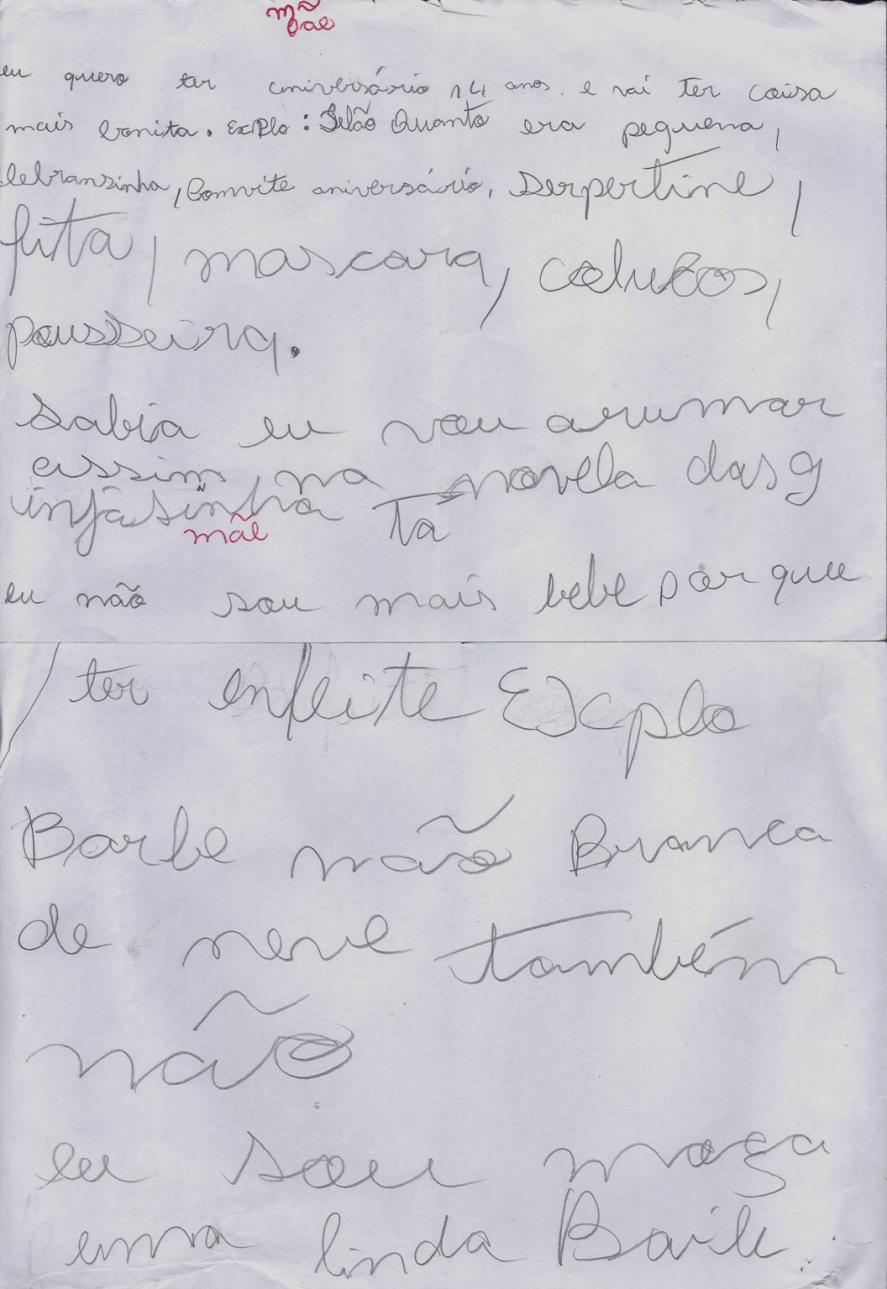 mãe
eu quero ter aniversário 14 anos. e vai ter coisa
mais bonita. Explo: Quanto era pequena,
lebransinha, Comvite aniversário, serpertine,
fita, mascara,
pousseira.
Sabia eu vou arumar
assim na novela das 9
tá
mãe
eu não sou mais bebe por que
ter enfeite Excplo
Barbe não Branca
de neve também
não
eu sou moça
uma linda Baile